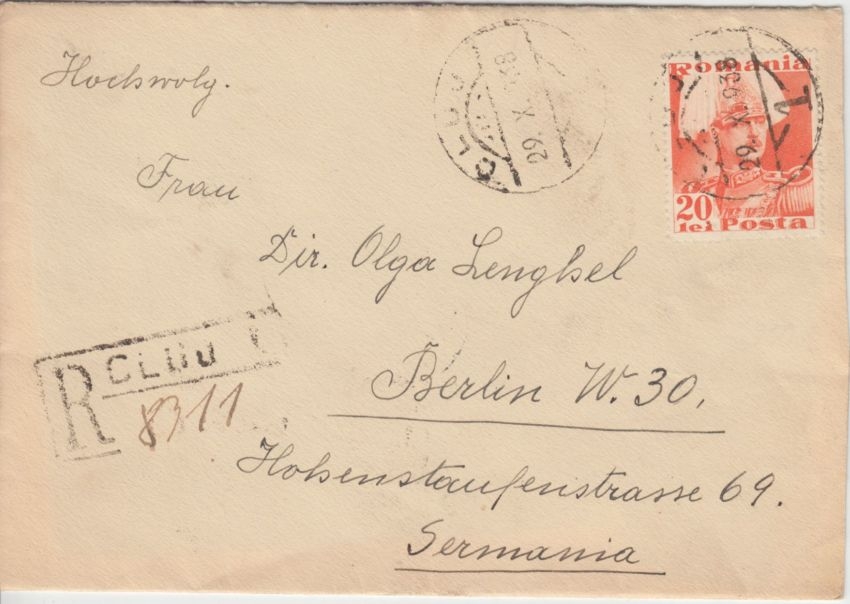 Hochwolg.
CLUJ
29. X. 938
29. X. 938
Romania
20
lei Posta
Frau
Dir. Olga Lenghel
Berlin W. 30.
Hohenstaufenstrasse 69.
Germania
R CLUJ
8311